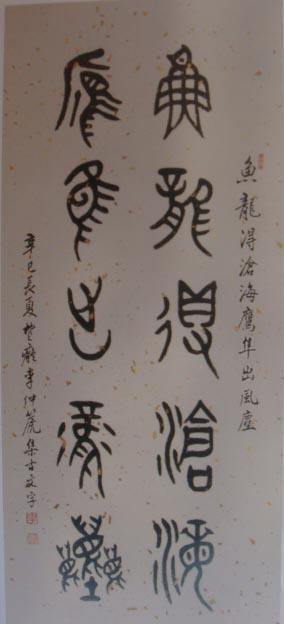 魚龍淂滄海鷹隼出風塵
魚龍得滄海
鷹隼出風塵
辛巳長夏李仲集古文字